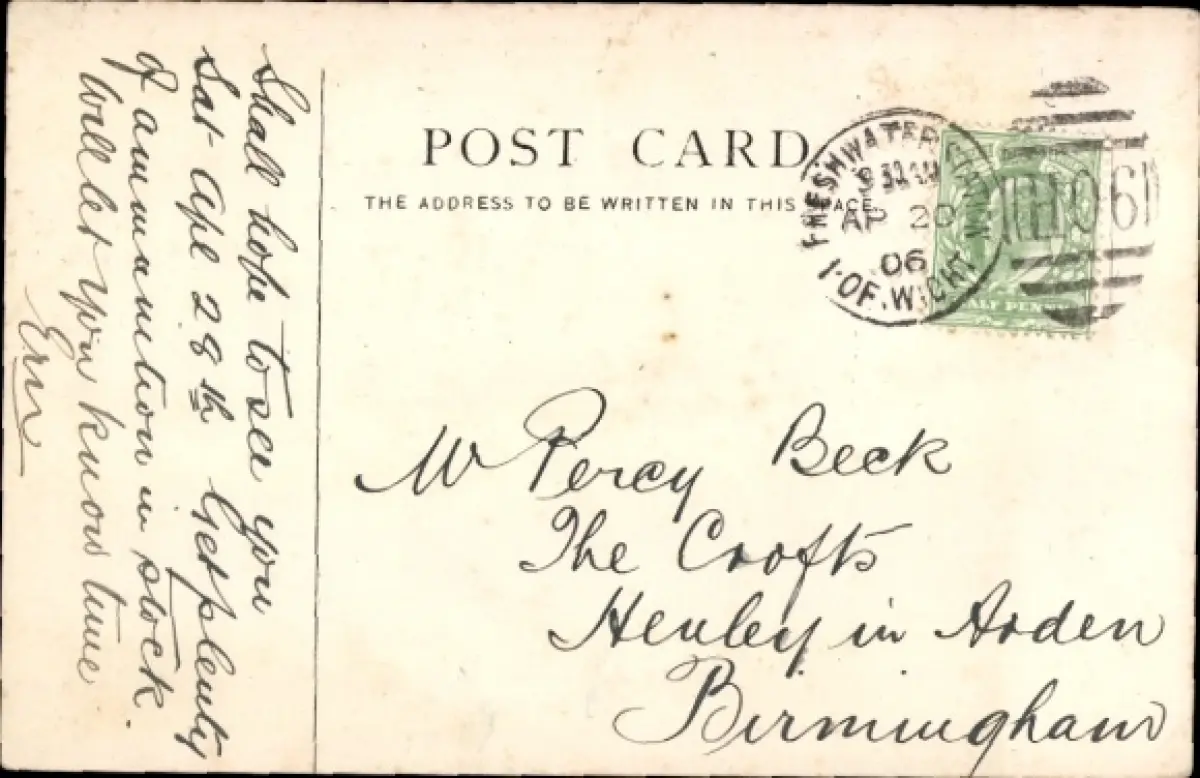 POST CARD
THE ADDRESS TO BE WRITTEN IN THIS SPACE.
FRESHWATER STATION
AP 20
06
I. OF. WIGHT
H06
HALF PENNY
Shall hope to see you
Sat Apl 28th Get plenty
of ammunition in stock.
Will let you know time
Ern
Mr Percy Beck
The Crofts
Henley in Arden
Birmingham